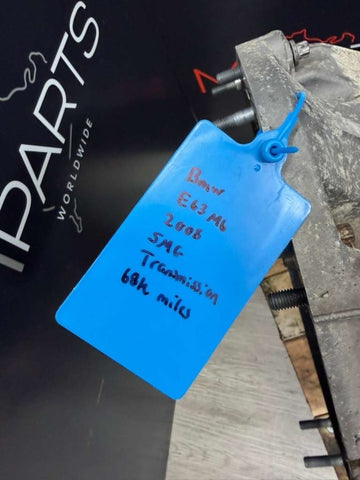 PARTS
WORLDWIDE
Bmw
E63 M6
2006
SMG
Transmission
68k miles